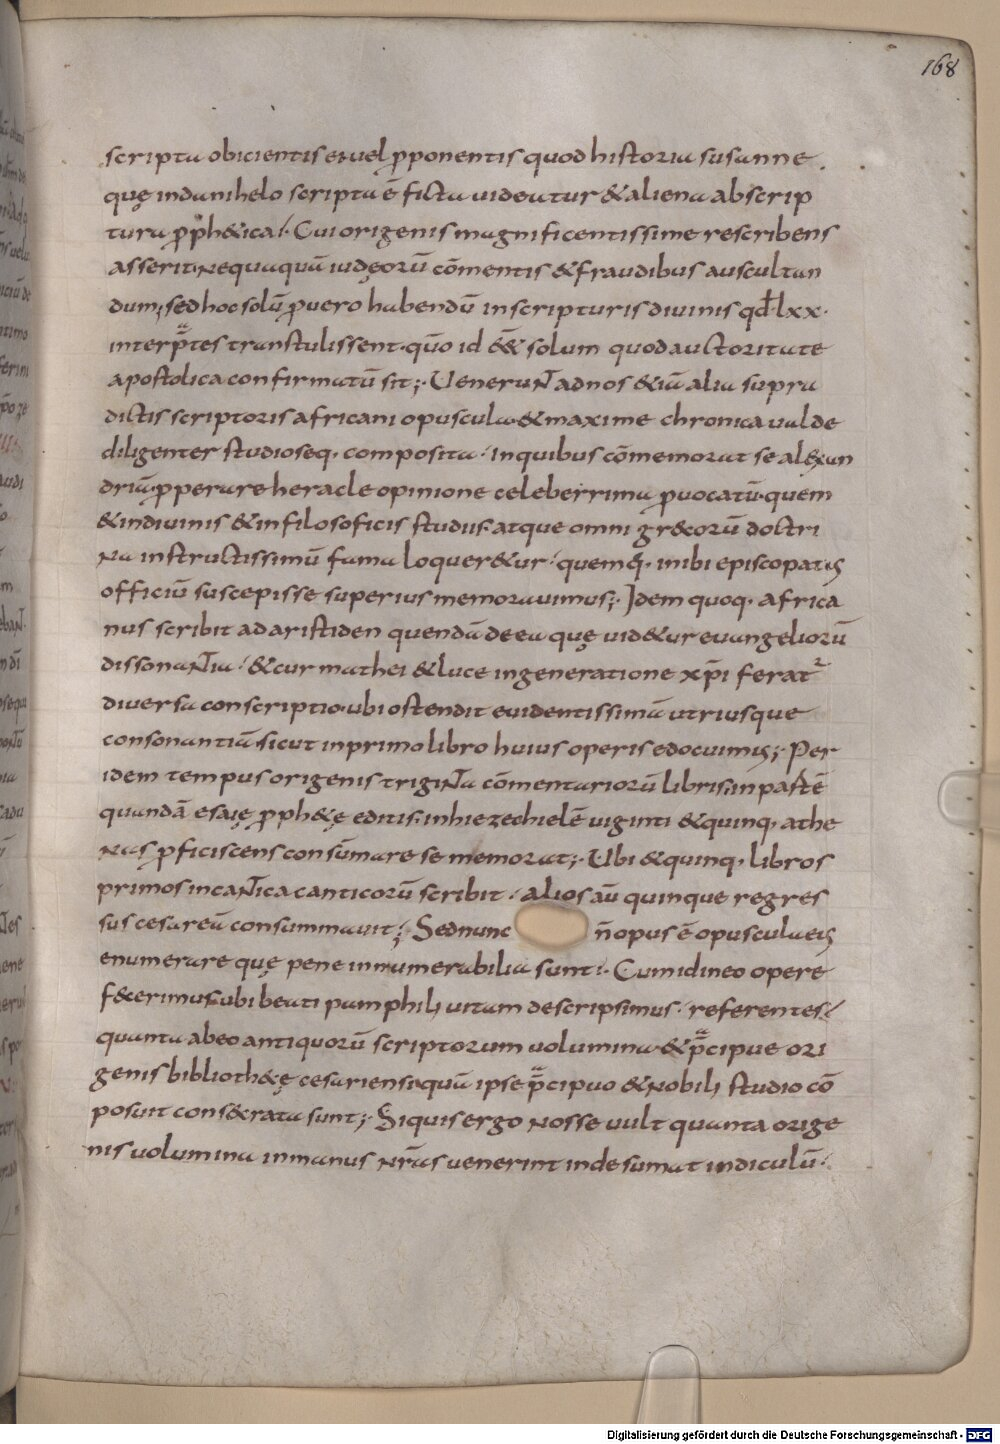 168
scripta obicientis ei uel ꝓponentis quod historia susanne
quę indanihelo scripta ē ficta uideatur & aliena abscrip
tura ꝓph&ica; Cui origenis magnificentissime rescribens
asserit nequaquā iudęorū cōmentis & fraudibus auscultan
dum; sed hoc solū ꝓ uero habendū inscripturis diuinis qđ lxx·
interp̄tes transtulissent· quō id ēē & solum quod auctoritate
apostolica confirmatū sit; Uenerunt ad nos & iā alia supra
dictis scriptoris africani opuscula & maxime chronica ualde
diligenter studioseq· composita· inquibus cōmemorat se alexan
driā ꝓperare heracle opinione celeberrima ꝓuocatū· quem
& indiuinis & in filosoficis studiis· atque omni grecorū doctri
na instructissimū fama loquer&ur· quemq· inibi episcopatus
officiū suscepisse superius memorauimus; Idem quoq· africa
nus scribit ad aristiden quendā de ea quę uid&ur euangeliorū
dissonantia· & cur mathei & luce ingeneratione xp̄i feratur
diuersa conscriptio· ubi ostendit euidentissimā utriusque
consonantiā sicut inprimo libro huius operis edocuimus; Per
idem tempus origenis triginta cōmentariorū libris· in partē
quandā esaię ꝓph&ę editis· in hiezechielē uiginti & quinq· athe
nas ꝓficiscens consūmare se memorat; Ubi & quinq· libros
primos incantica canticorū scribit· alios aū quinque regres
sus cesareā consummauit; Sed nunc n̄ opus ē opuscula eius
enumerare quę pene innumerabilia sunt· Cum id ineo opere
f&cerimus· ubi beati pamphili uitam descripsimus· referentes·
quanta ab eo antiquorū scriptorum uolumina & p̄cipue ori
genis biblioth&ę cesariensi· quā ipse p̄cipuo & nobili studio cō
posuit cons&crata sunt; Siquis ergo nosse uult quanta orige
nis uolumina inmanus nr̄as uenerint inde sumat indiculū·
Digitalisierung gefördert durch die Deutsche Forschungsgemeinschaft - DFG